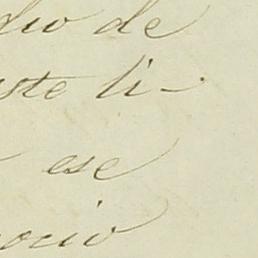 dio de
aste li-
ese
ocio